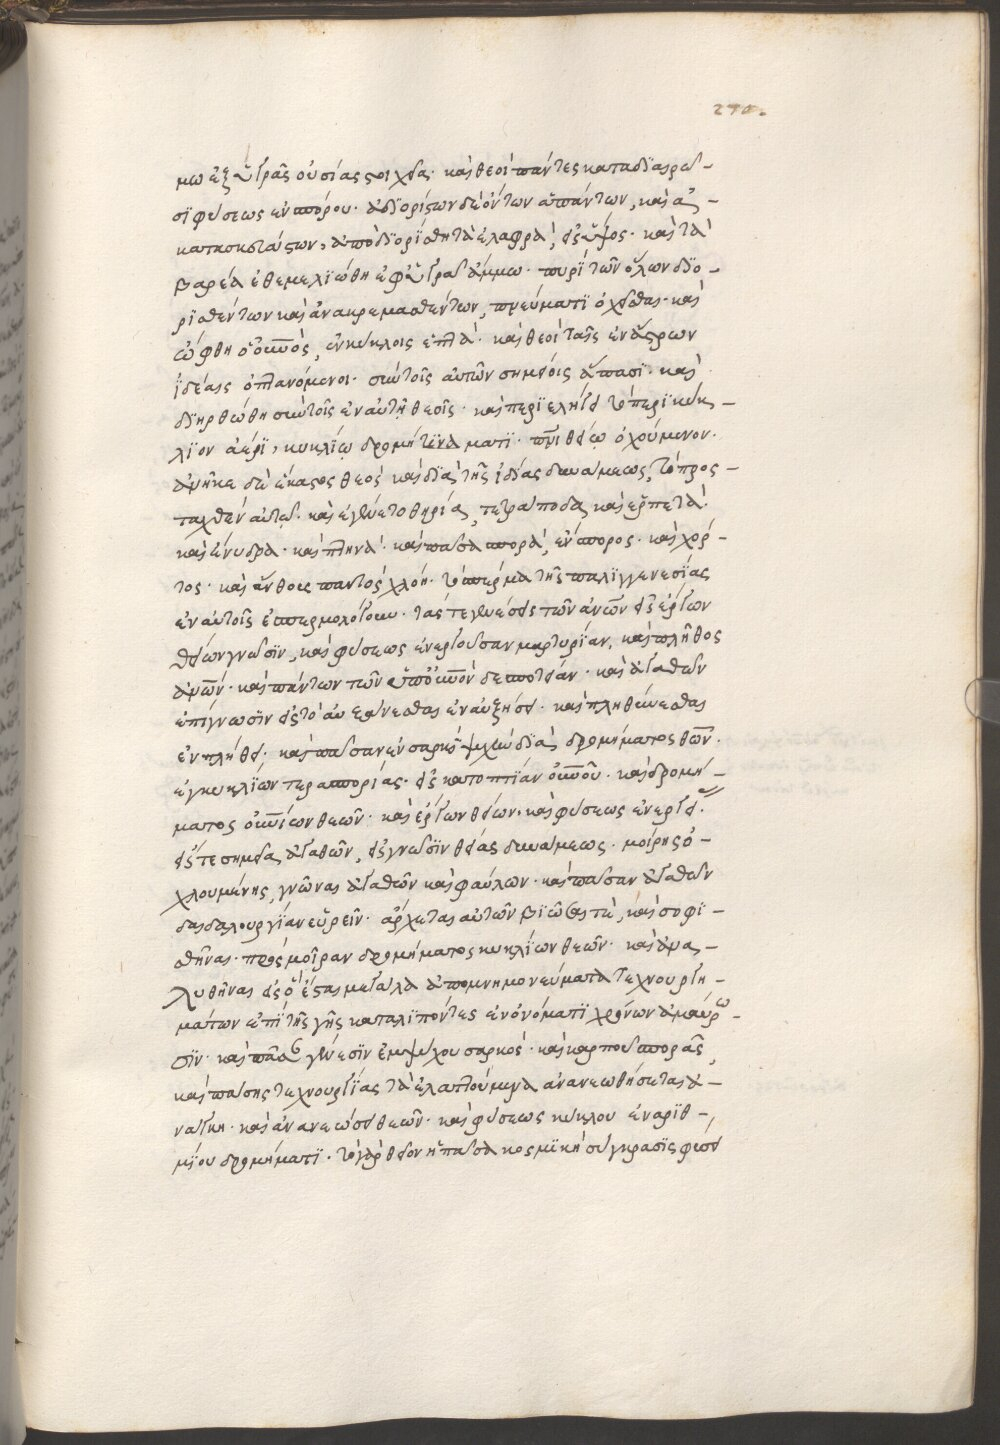 274.
μω ἐξ ὑγρᾶς οὐσίας στοιχεῖα· καὶ θεοὶ πάντες καταδϊαιρῶ-
σϊ φύσεως ἐνσπόρου· ἀδϊορίστων δὲ ὄντων ἁπάντων, καὶ ἀ-
κατασκευάστων, ἀποδϊορίσθη τὰ ἐλαφρὰ, εἰς ὕψος· καὶ τὰ
βαρέα ἐθεμελϊώθη ἐφ᾽ ὑγρᾶ ἄμμω· πυρὶ τῶν ὅλων δϊο-
ρϊσθέντων καὶ ἀνακρεμασθέντων, πνεύματϊ ὀχεῖσθαι· καὶ
ὤφθη ὁ οὐνὸς, ἐν κύκλοις ἑπτὰ· καὶ θεοὶ ταῖς ἐν ἄστρων
ἰδέαις ὀπτανόμενοι· σὺν τοῖς αὐτῶν σημείοις ἅπασϊ· καὶ
δϊηρθώθη σὺν τοῖς ἐν αὐτῆ θεοῖς· καὶ περϊελήγει τὸ περϊκύκ-
λϊον ἀέρϊ, κυκλίω δρομήτϊνα ματϊ· πνι θείω ὀχούμενον·
ἀνῆκε δὲ ἕκαστος θεὸς καὶ δϊὰ τῆς ἰδίας δυνάμεως, τὸ προς-
ταχθὲν αὐτῶ· καὶ ἐγένετο θηρία, τετράποδα, καὶ ἑρπετὰ·
καὶ ἔνυδρα· καὶ πτηνὰ· καὶ πᾶσα σπορὰ, ἔνσπορος· καὶ χόρ-
τος· καὶ ἄνθους παντὸς χλόη· τὸ σπέρμα τῆς παλϊγγενεσίας
ἐν αὐτοῖς ἐσπερμολόγουν· τάς τε γενέσεις τῶν ἀνων εἰς ἔργων
θείων γνῶσϊν, καὶ φύσεως ἐνεργοῦσαν μαρτυρίαν, καὶ πλῆθος
ἀνων· καὶ πάντων τῶν ὑπὸ οὐνὸν δεσποτείαν· καὶ ἀγαθῶν
ἐπίγνωσϊν εἰς τὸ αὐξάνεσθαι ἐν αὐξήσει· καὶ πληθύνεσθαι
ἐν πλήθει, καὶ πᾶσαν ἐν σαρκὶ ψυχὴν δϊὰ δρομήματος θεῶν·
ἐγκυκλίων τερασπορίας· εἰς κατοπτίαν οὐνοῦ· καὶ δρομή-
ματος οὐνίων θεῶν· καὶ ἔργων θείων· καὶ φύσεως ἐνεργείας
εἴς τε σημεῖα ἀγαθῶν, εἰς γνῶσϊν θείας δυνάμεως· μοίρης ὀ-
χλουμένης, γνῶναι ἀγαθῶν καὶ φαύλων· καὶ πᾶσαν ἀγαθῶν
δαιδαλουργίαν εὑρεῖν· ἄρχεται αὐτῶν βϊῶσαί τε, καὶ σοφϊ-
σθῆναι· πρὸς μοῖραν δρομήματος κυκλίων θεῶν· καὶ ἀνα-
λυθῆναι εἰς ὃ ἔσται μεγάλα ἀπομνημονεύματα τεχνουργη-
μάτων ἐπὶ τῆς γῆς καταλϊπόντες ἐν ὀνόματϊ χρόνων ἀμαύρω-
σϊν· καὶ πᾶσαν γένεσϊν ἐμψύχου σαρκὸς· καὶ καρποῦ σπορᾶς,
καὶ πάσης τεχνουργΐας τὰ ἐλαττούμενα ἀνανεωθήσεται ἀ-
νάγκη· καὶ ἀνανεώσει θεῶν· καὶ φύσεως κύκλου ἐναρϊθ-
μΐου δρομήματϊ· τὸ γὰρ θεῖον ἡ πᾶσα κοσμϊκὴ σύγκρασϊς φύσει